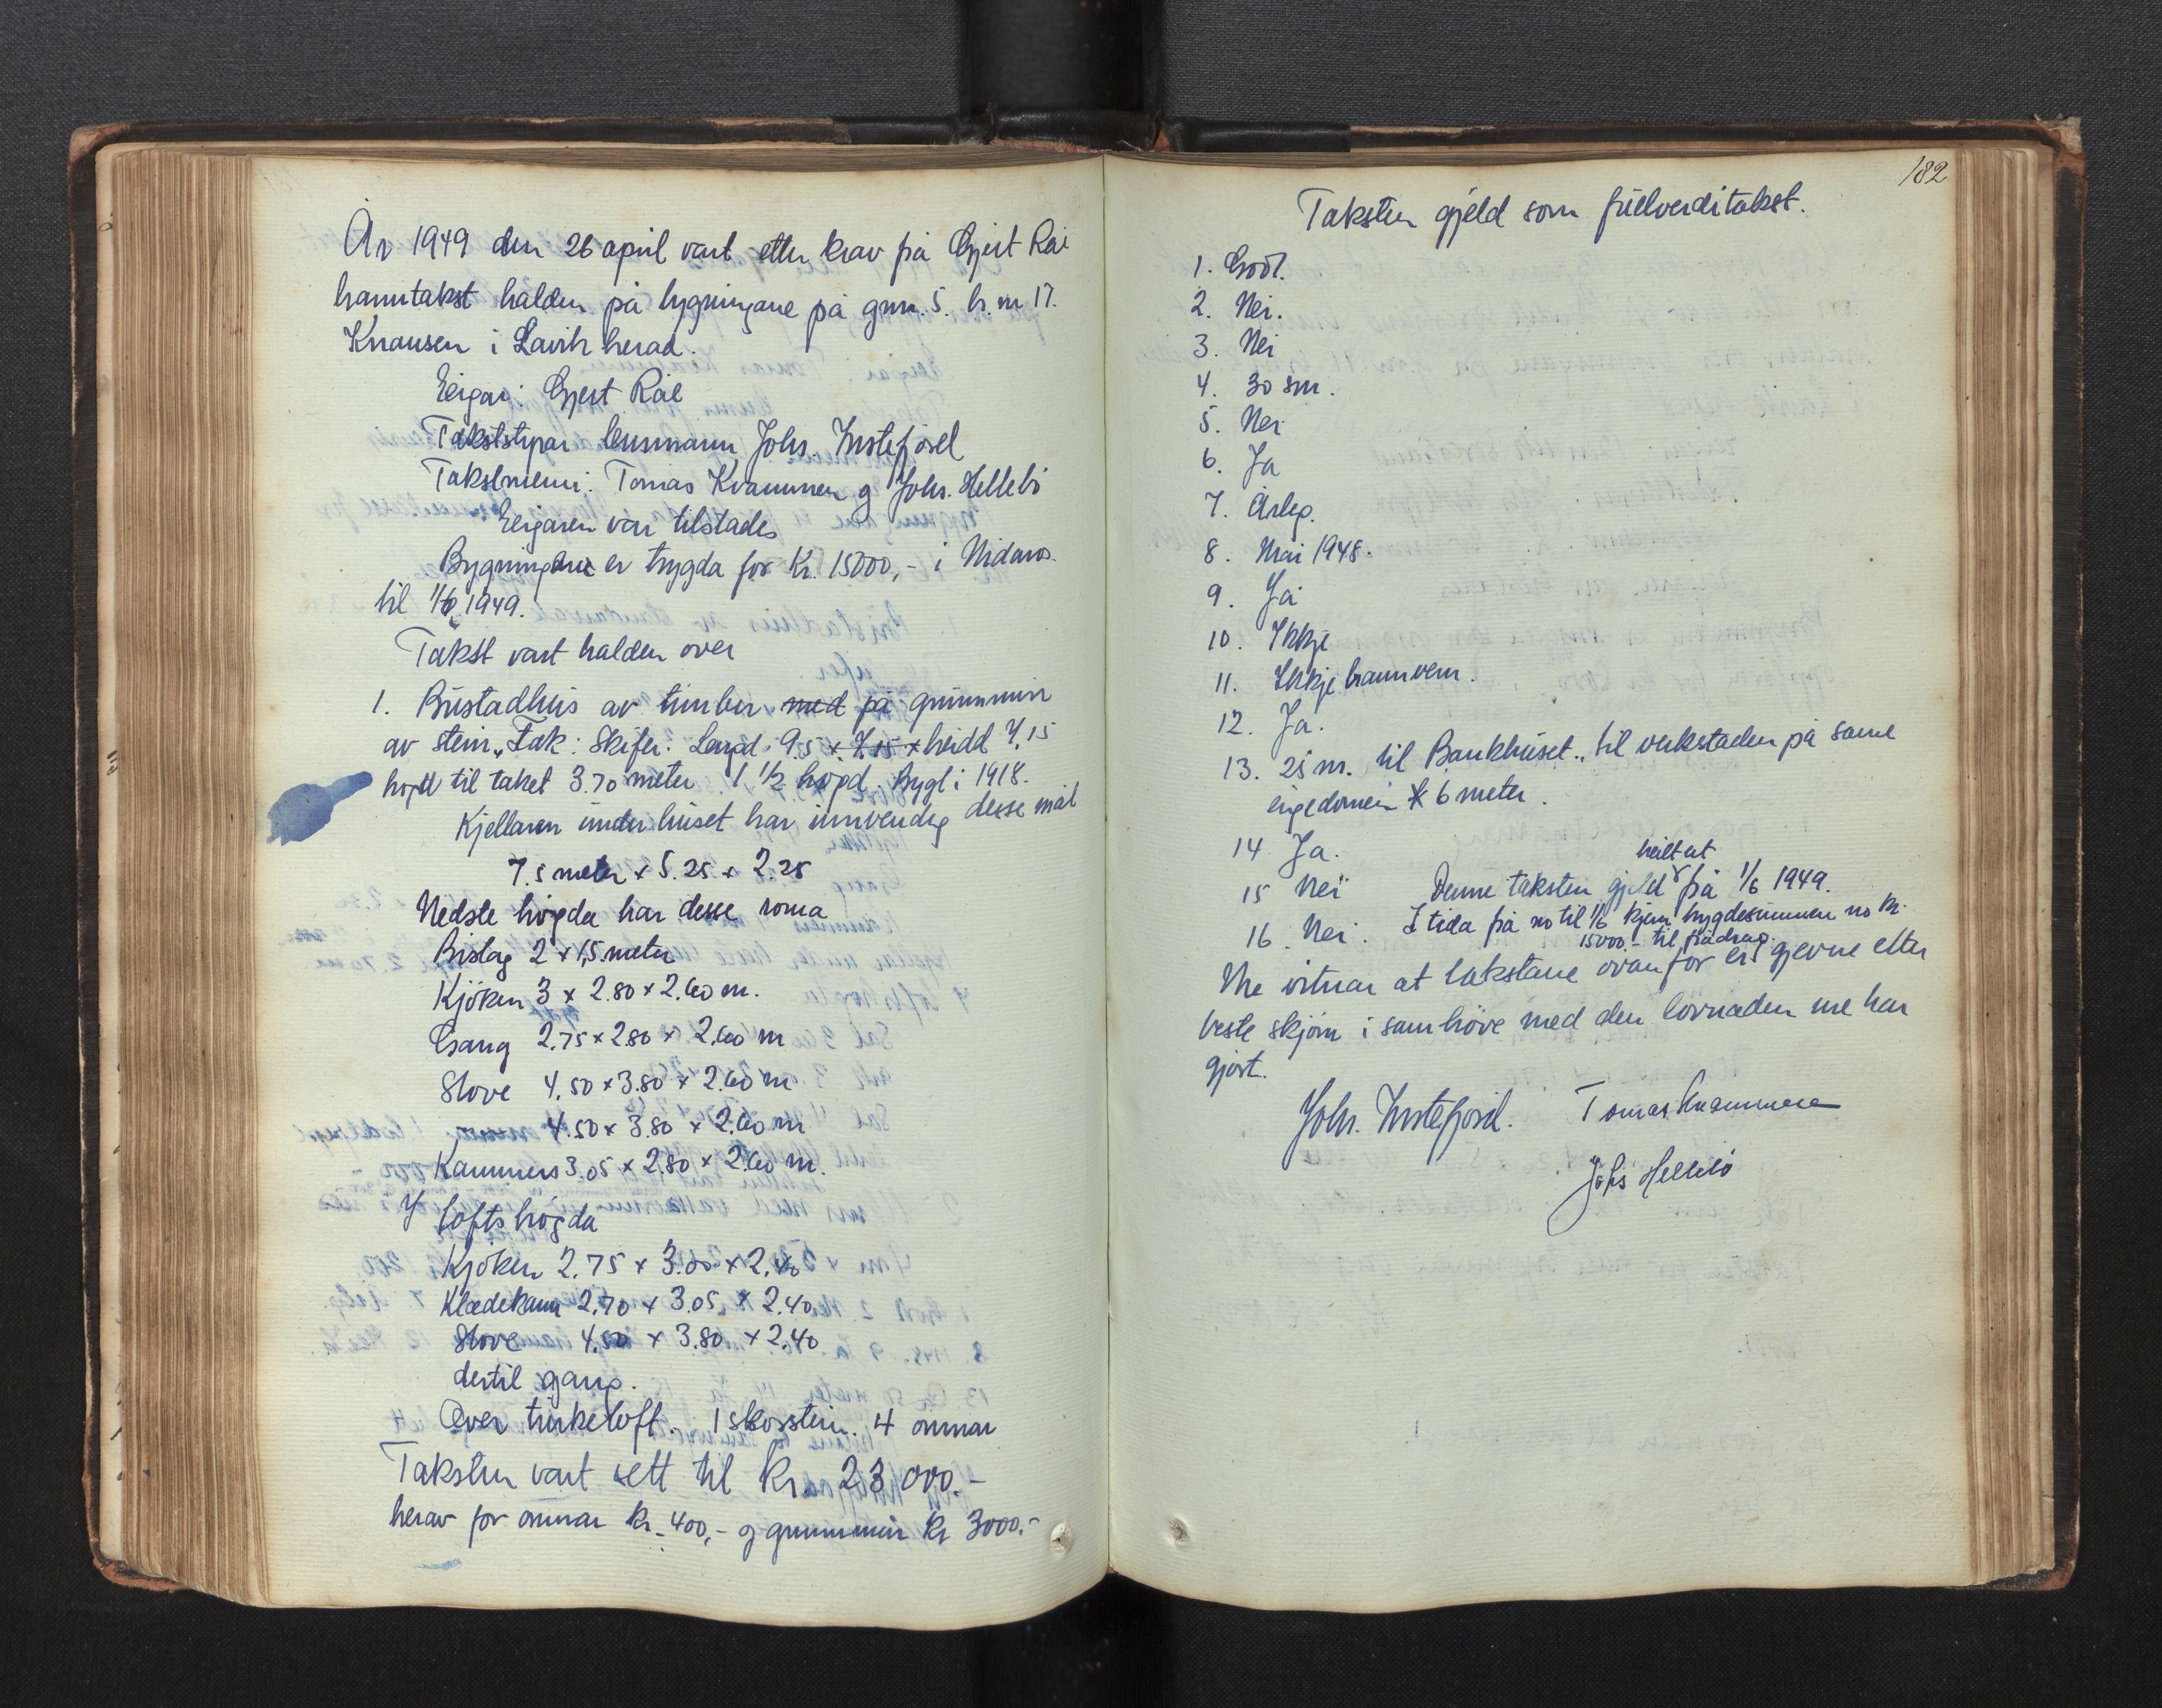 År 1949 den 26 april vart etter krav på Gjert Råe
branntakst halden på bygningane på gnr. 5. br. nr 17.
Knausen i Lavik herad.
Eigar: Gjert Råe
Takststyrar lensmann Johs. Instefjord
Takstmenn: Tomas Kvammen og Johs. Hellebö
Eigaren var tilstades
Bygningane er trygda for kr. 15000,- i Nidaros
til 1/6 1949.
Takst vart halden over
1. Bustadhus av timber med på grunnmur
av stein. Tak: Skifer. Lengd 9.5 x 7.15 x breidd 7.15
høgd til taket 3.70 meter 1 1/2 høgd. Bygt i 1918.
Kjellaren under huset har innvendig desse mål
7.5 meter x 5.25 x 2.25
Nedste högda har desse roma
Bislag 2 x 1,5 meter
Kjöken 3 x 2.80 x 2.60 m.
Gang 2.75 x 2.80 x 2.60 m
Stove 4.50 x 3.80 x 2.60 m
4.50 x 3.80 x 2.60 m
Kammers 3.05 x 2.80 x 2.60 m.
Loftshögda
Kjöken 2.75 x 3.00 x 2.40
Klædekam 2.70 x 3.05 x 2.40
Stove 4.50 x 3.80 x 2.40
dertil gang.
Over turkeloft. 1 skorstein. 4 omnar
Taksten vart sett til kr 23 000.-
herav for omnar kr. 400,- og grunnmur kr 3000.-
182
Taksten gjeld som fullverditakst.
1. Godt.
2. Nei.
3. Nei
4. 30 sm.
5. Nei
6. Ja
7. Årleg.
8. Mai 1948.
9. Ja
10. Ikkje
11. Ikkje brannvern.
12. Ja.
13. 25 m. til Bankhuset., til verkstaden på same
eigedomen 6 meter.
14 Ja.
heilt ut
15 Nei Denne taksten gjeld frå 1/6 1949.
16. Nei. I tida frå no til 1/6 kjem trygdesummen no kr.
15000.- til frådrag.
Me vitnar at takstane ovanfor er gjevne etter
beste skjön i samhöve med den lovnaden me har
gjort.
Johs. Instefjord. Tomas Kvammen
Johs Hellebö